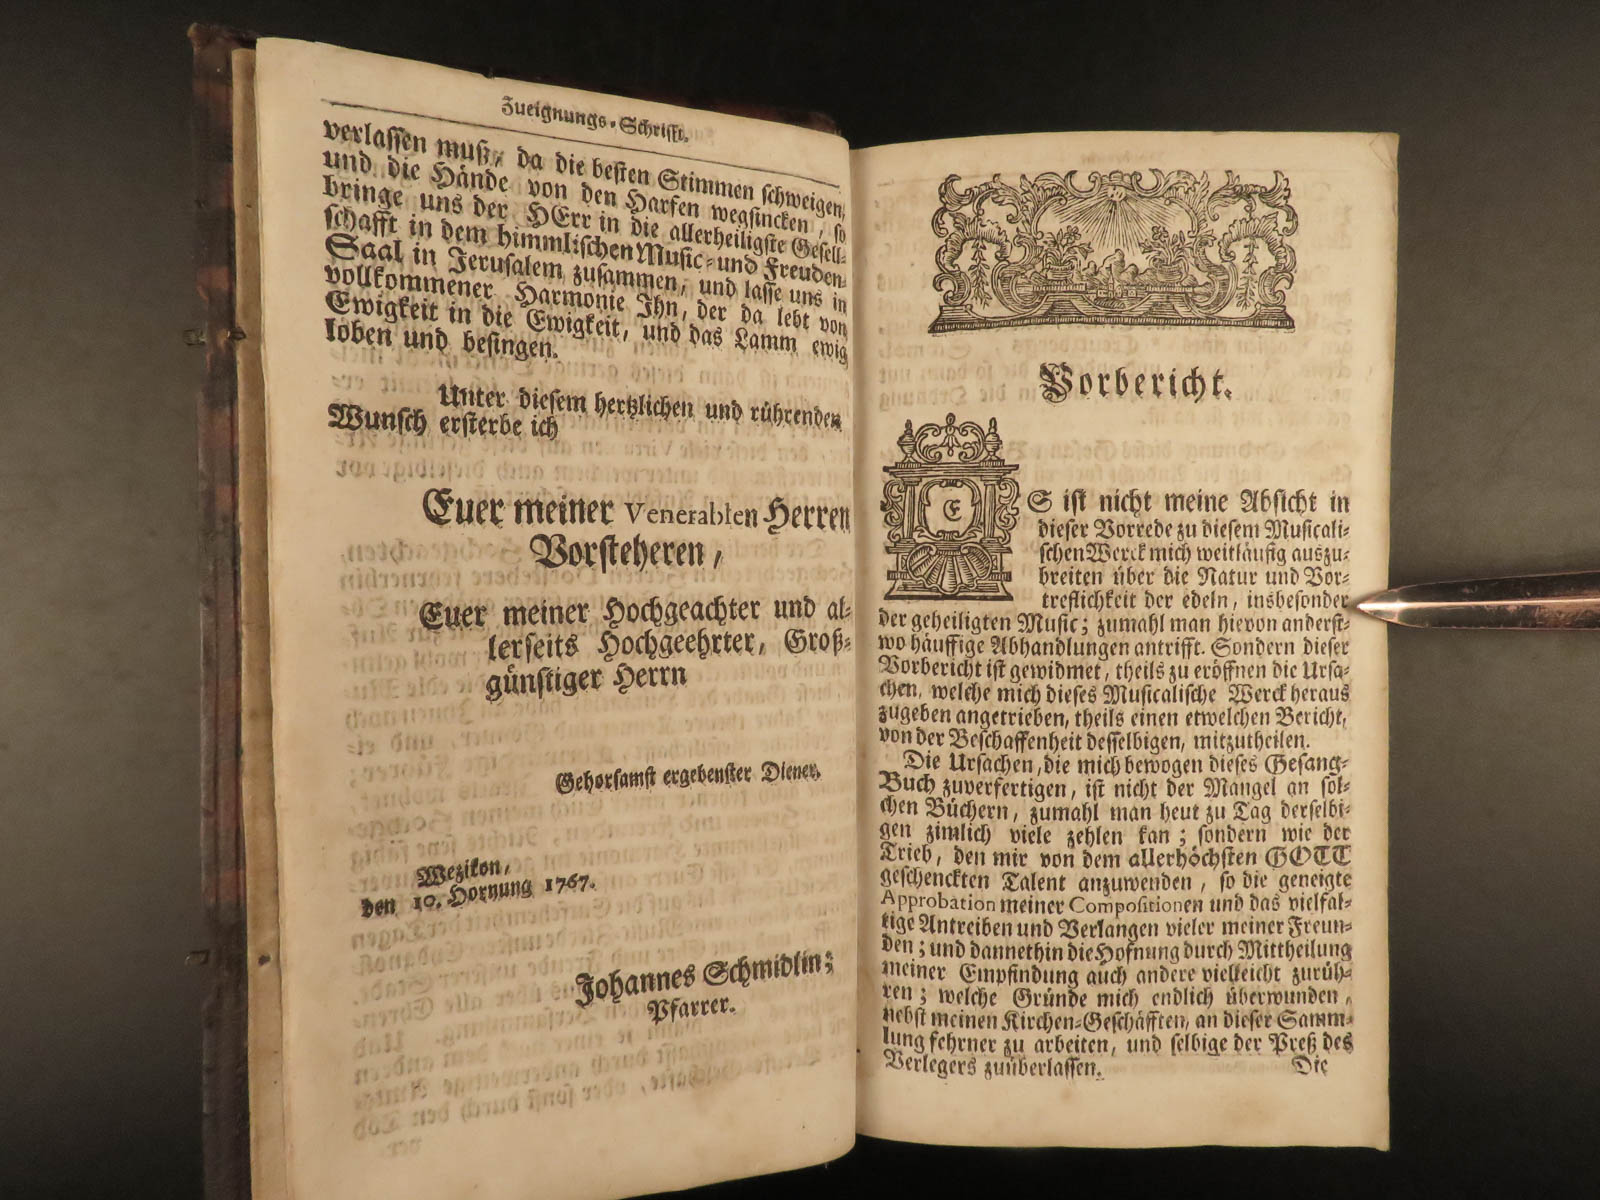 Zueignungs-Schrifft.
verlassen muß, da die besten Stimmen schweigen,
und die Hände von den Harfen wegsincken, so
bringe uns der HErr in die allerheiligste Gesell-
schafft in dem himmlischen Music- und Freuden-
Saal in Jerusalem zusammen, und lasse uns in
vollkommener Harmonie Ihn, der da lebt von
Ewigkeit in die Ewigkeit, und das Lamm ewig
loben und besingen.
Unter diesem hertzlichen und rührenden
Wunsch ersterbe ich
Euer meiner Venerablen Herren
Vorsteheren,
Euer meiner Hochgeachter und al-
lerseits Hochgeehrter, Groß-
günstiger Herrn
Gehorsamst ergebenster Diener,
Wezikon,
den 10. Hornung 1767.
Johannes Schmidlin;
Pfarrer.
Vorbericht.
ES ist nicht meine Absicht in
dieser Vorrede zu diesem Musicali-
schen Werck mich weitläufig auszu-
breiten über die Natur und Vor-
treflichkeit der edeln, insbesonder
der geheiligten Music; zumahl man hievon anderst-
wo häuffige Abhandlungen antrifft. Sondern dieser
Vorbericht ist gewidmet, theils zu eröffnen die Ursa-
chen, welche mich dieses Musicalische Werck heraus
zugeben angetrieben, theils einen etwelchen Bericht,
von der Beschaffenheit desselbigen, mitzutheilen.
Die Ursachen, die mich bewogen dieses Gesang-
Buch zuverfertigen, ist nicht der Mangel an sol-
chen Büchern, zumahl man heut zu Tag derselbi-
gen zimlich viele zehlen kan; sondern wie der
Trieb, den mir von dem allerhöchsten GOTT
geschenckten Talent anzuwenden, so die geneigte
Approbation meiner Compositionen und das vielfal-
tige Antreiben und Verlangen vieler meiner Freun-
den; und dannethin die Hofnung durch Mittheilung
meiner Empfindung auch andere vielleicht zurüh-
ren; welche Gründe mich endlich überwunden,
nebst meinen Kirchen-Geschäfften, an dieser Samm-
lung fehrner zu arbeiten, und selbige der Preß des
Verlegers zuüberlassen.
Die